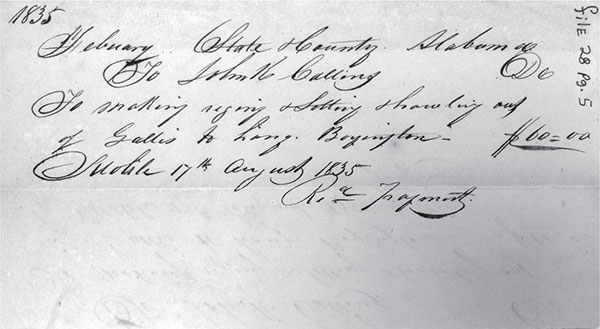 1835
Febuary. State & County. Alabama
To John K Collins Dr
To making raging & Setting & hawling out
of Gallis to hang. Boyington – $60=00
Mobile 17th August 1835
Recd Payment.
File 28 pg. 5